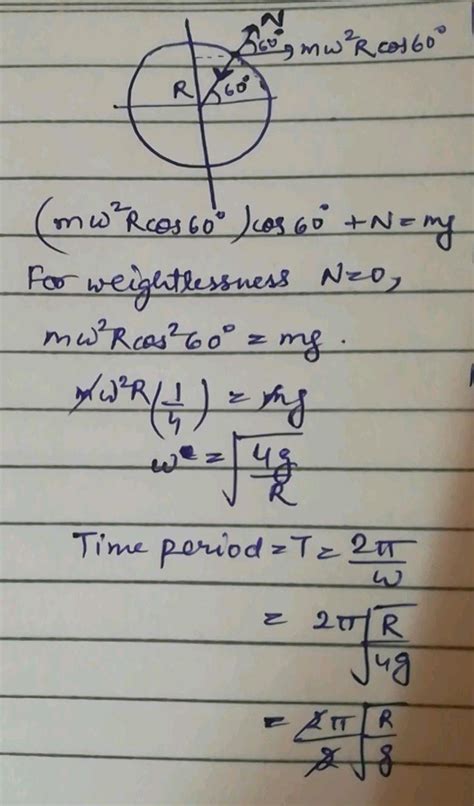 N
60° mω²Rcos60°
R 60°
(mω²Rcos60°)cos60° + N = mg
For weightlessness N=0,
mω²Rcos²60° = mg.
mω²R(1/4) = mg
ω = √(4g/R)
Time period = T = 2π/ω
= 2π√(R/4g)
= 2π/2 √(R/g)